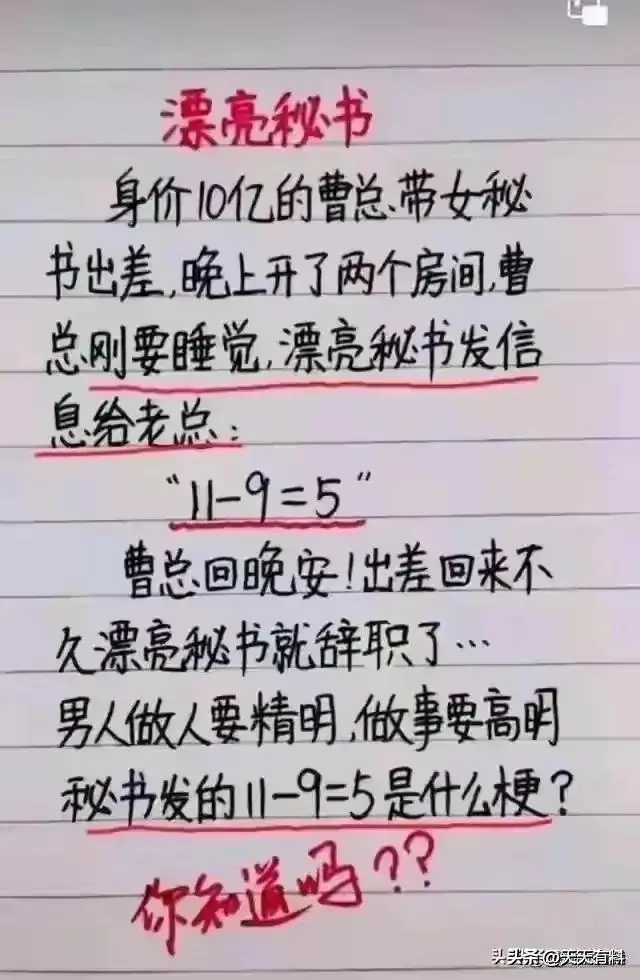 漂亮秘书
身价10亿的曹总带女秘
书出差,晚上开了两个房间,曹
总刚要睡觉,漂亮秘书发信
息给老总:
“11-9=5”
曹总回晚安!出差回来不
久漂亮秘书就辞职了…
男人做人要精明,做事要高明
秘书发的11-9=5是什么梗?
你知道吗??
头条@天天有料